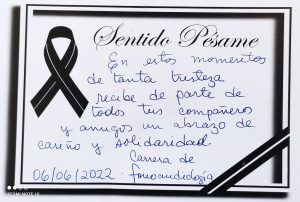 Sentido Pésame
En estos momentos
de tanta tristeza
recibe de parte de
todos tus compañeros
y amigos un abrazo de
cariño y solidaridad.
Carrera de
06/06/2022 fonoaudiología
REDMI NOTE 10